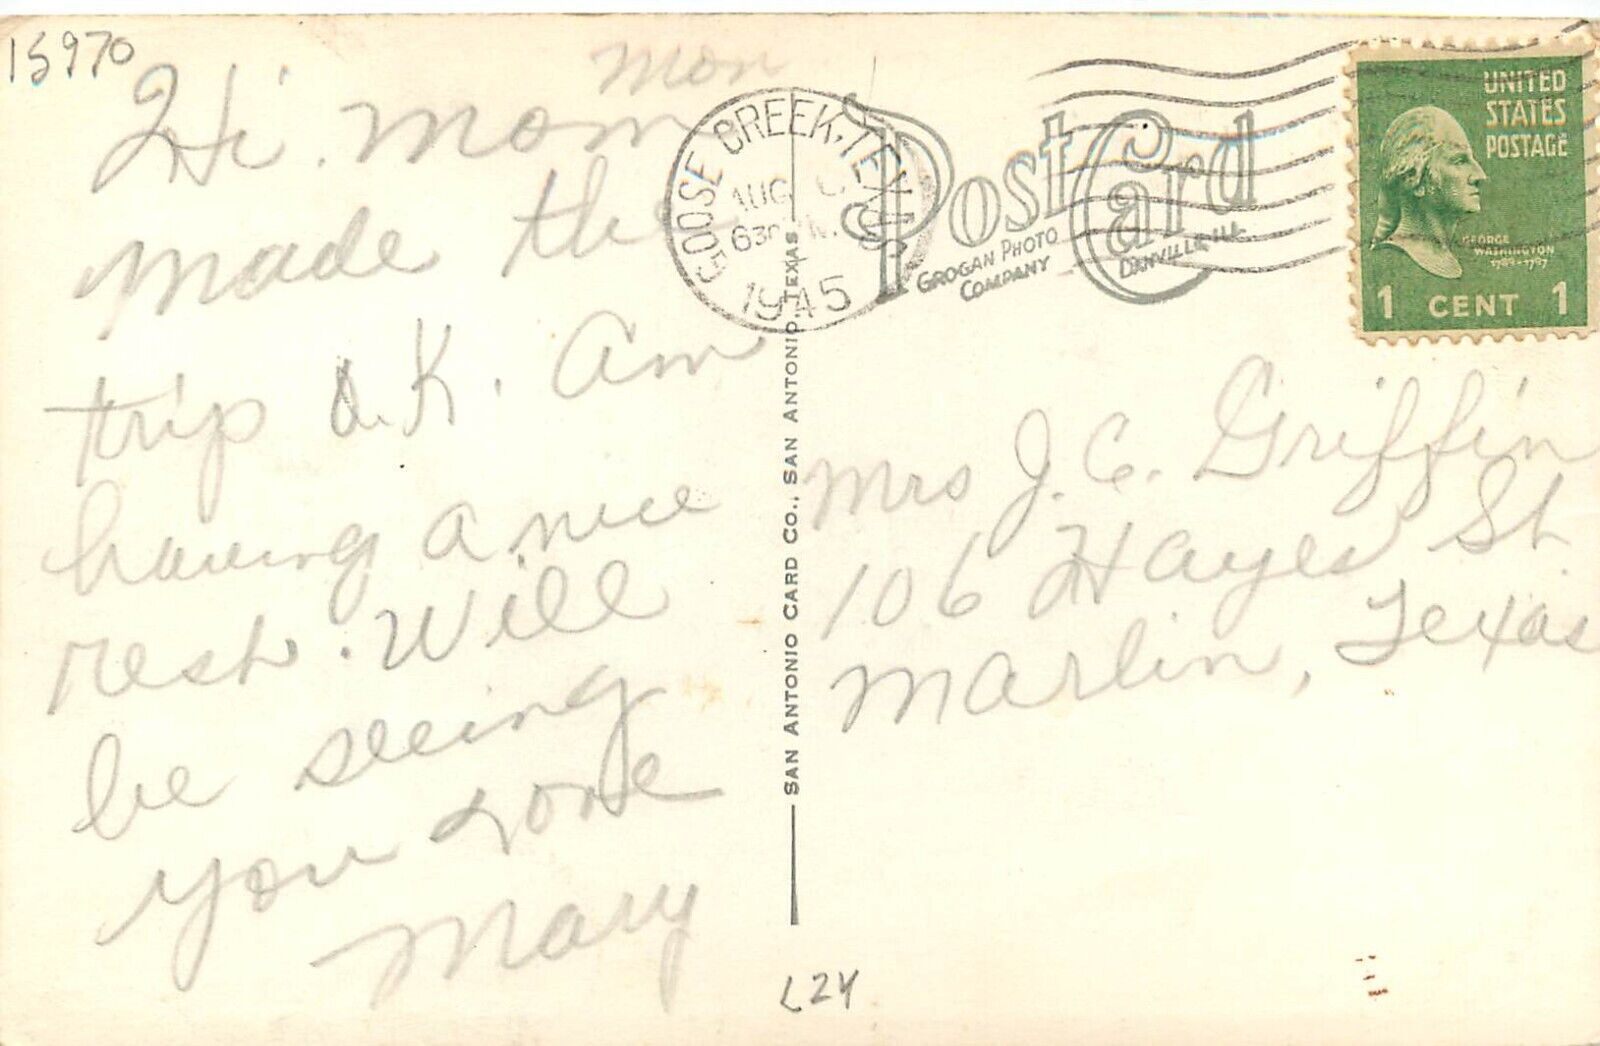 15970
Mon
Hi. Mom
made the
trip O.K. Am
having a nice
rest. Will
be seeing
you Love
Mary
GOOSE CREEK, TEXAS
AUG
630 PM
1945
Post Card
GROGAN PHOTO
COMPANY
DANVILLE, ILL.
UNITED
STATES
POSTAGE
GEORGE
WASHINGTON
1789-1797
1 CENT 1
SAN ANTONIO CARD CO., SAN ANTONIO, TEXAS
Mrs J. C. Griffin
106 Hayes St
Marlin, Texas
L24